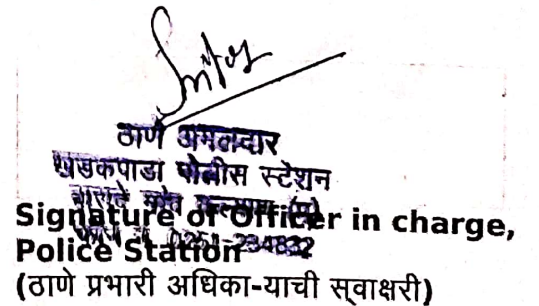 ठाणे अमलदार
खडकपाडा पोलीस स्टेशन
Signature of Officer in charge,
Police Station
(ठाणे प्रभारी अधिका-याची स्वाक्षरी)